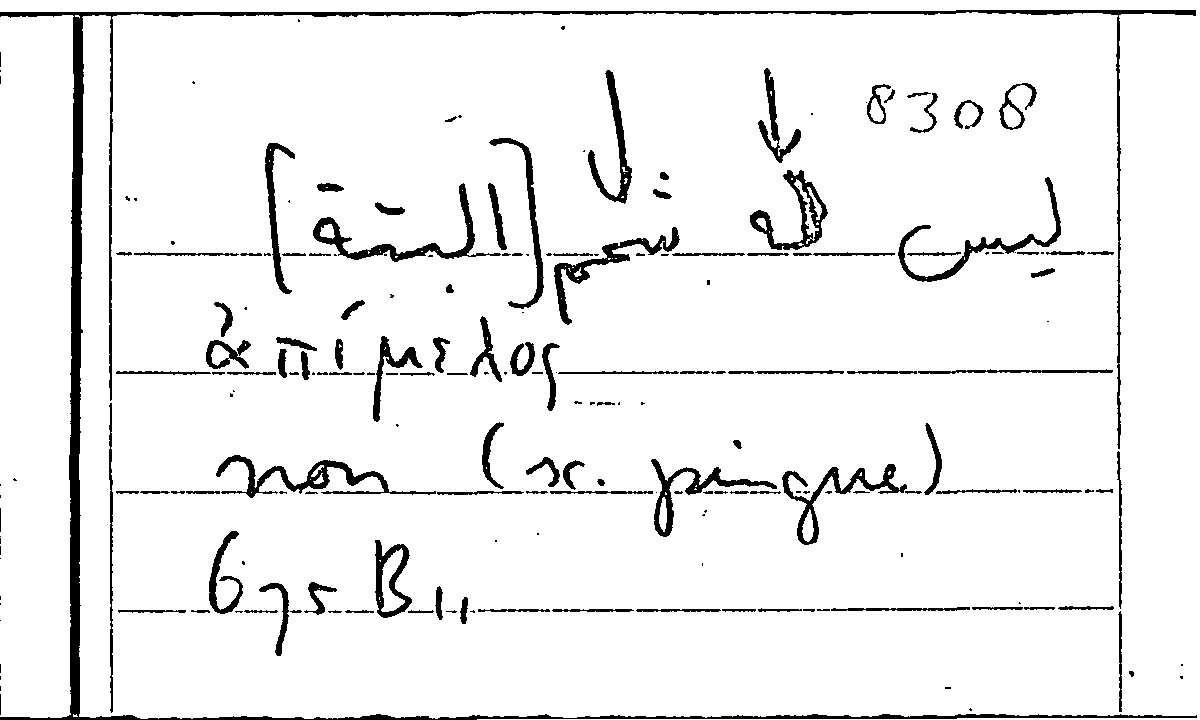 8308
ليس له شحم [البتة]
ἀπίμελος
non (sc. pingue)
675 B 11